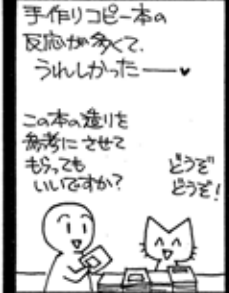 手作りコピー本の
反応が多くて、
うれしかったー♥
この本の造りを
参考にさせて
もらっても
いいですか?
どうぞ
どうぞ!